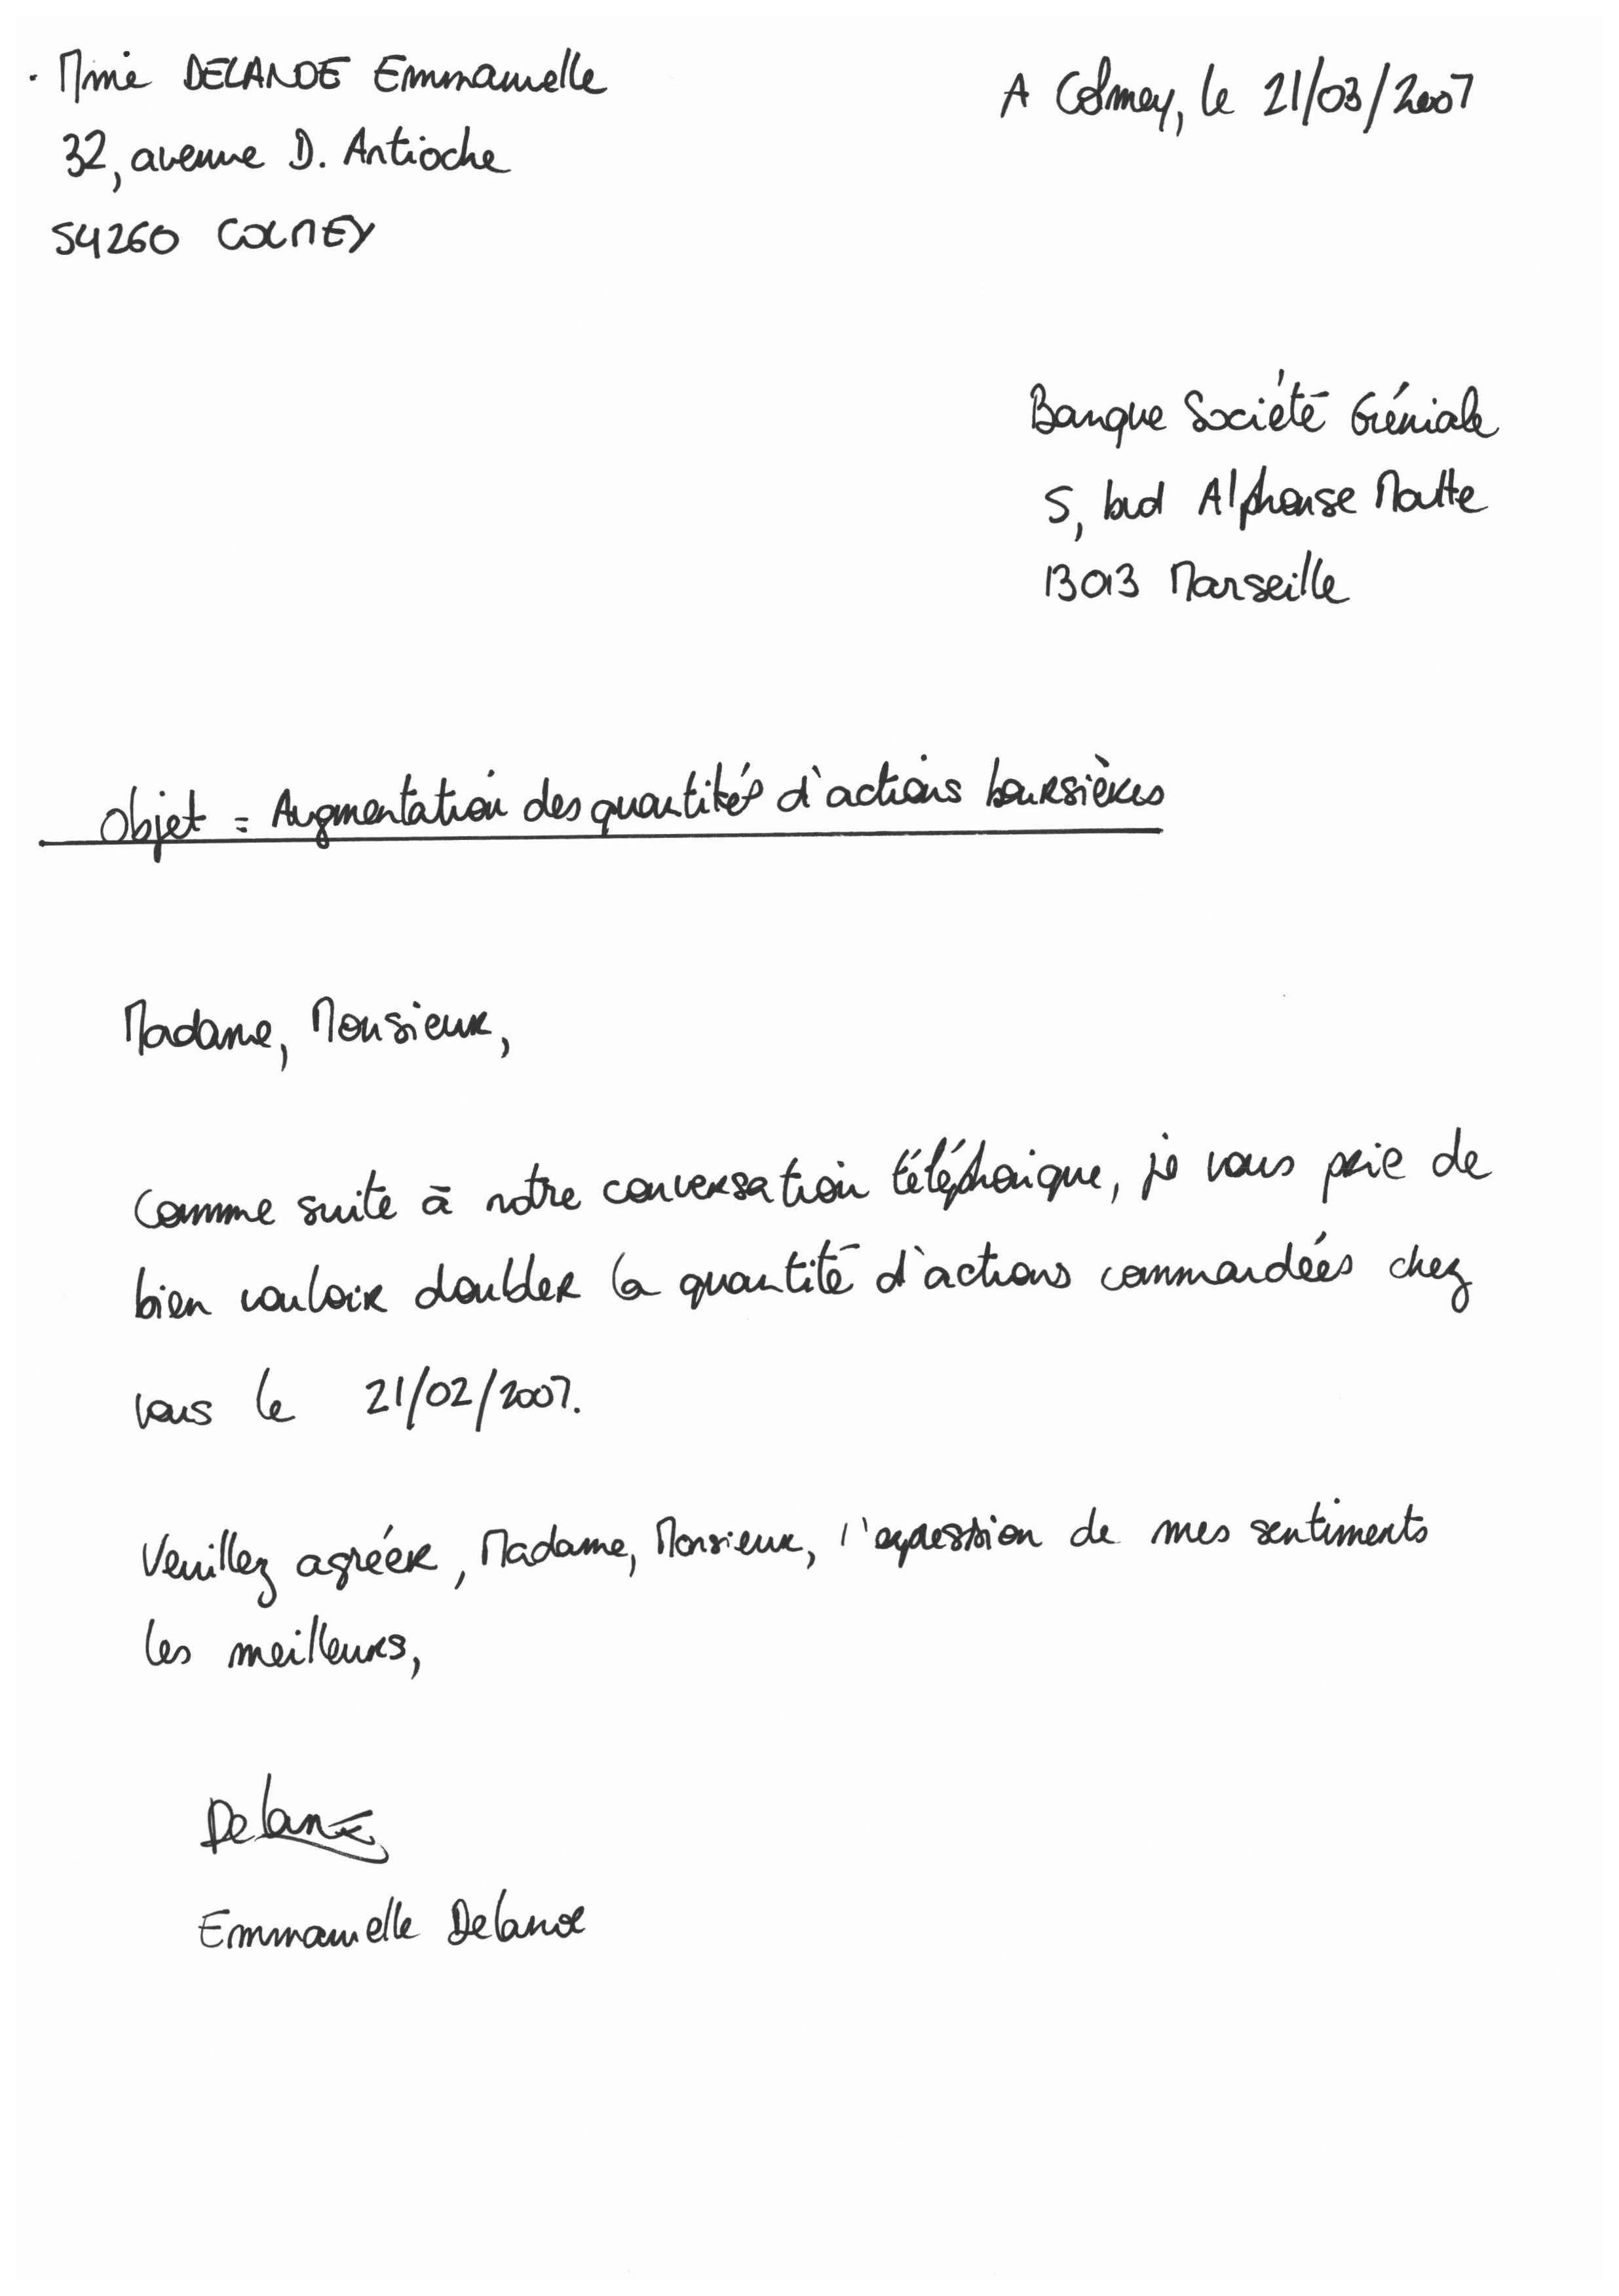 Mme DELANOE Emmanuelle
A Colmey, le 21/03/2007
32, avenue D. Antioche
54260 COLMEY
Banque Société Géniale
5, bvd Alphonse Moutte
13013 Marseille
Objet : Augmentation des quantités d'actions boursières
Madame, Monsieur,
Comme suite à notre conversation téléphonique, je vous prie de
bien vouloir doubler la quantité d'actions commandées chez
vous le 21/02/2007.
Veuillez agréer, Madame, Monsieur, l'expression de mes sentiments
les meilleurs,
Emmanuelle Delanoe